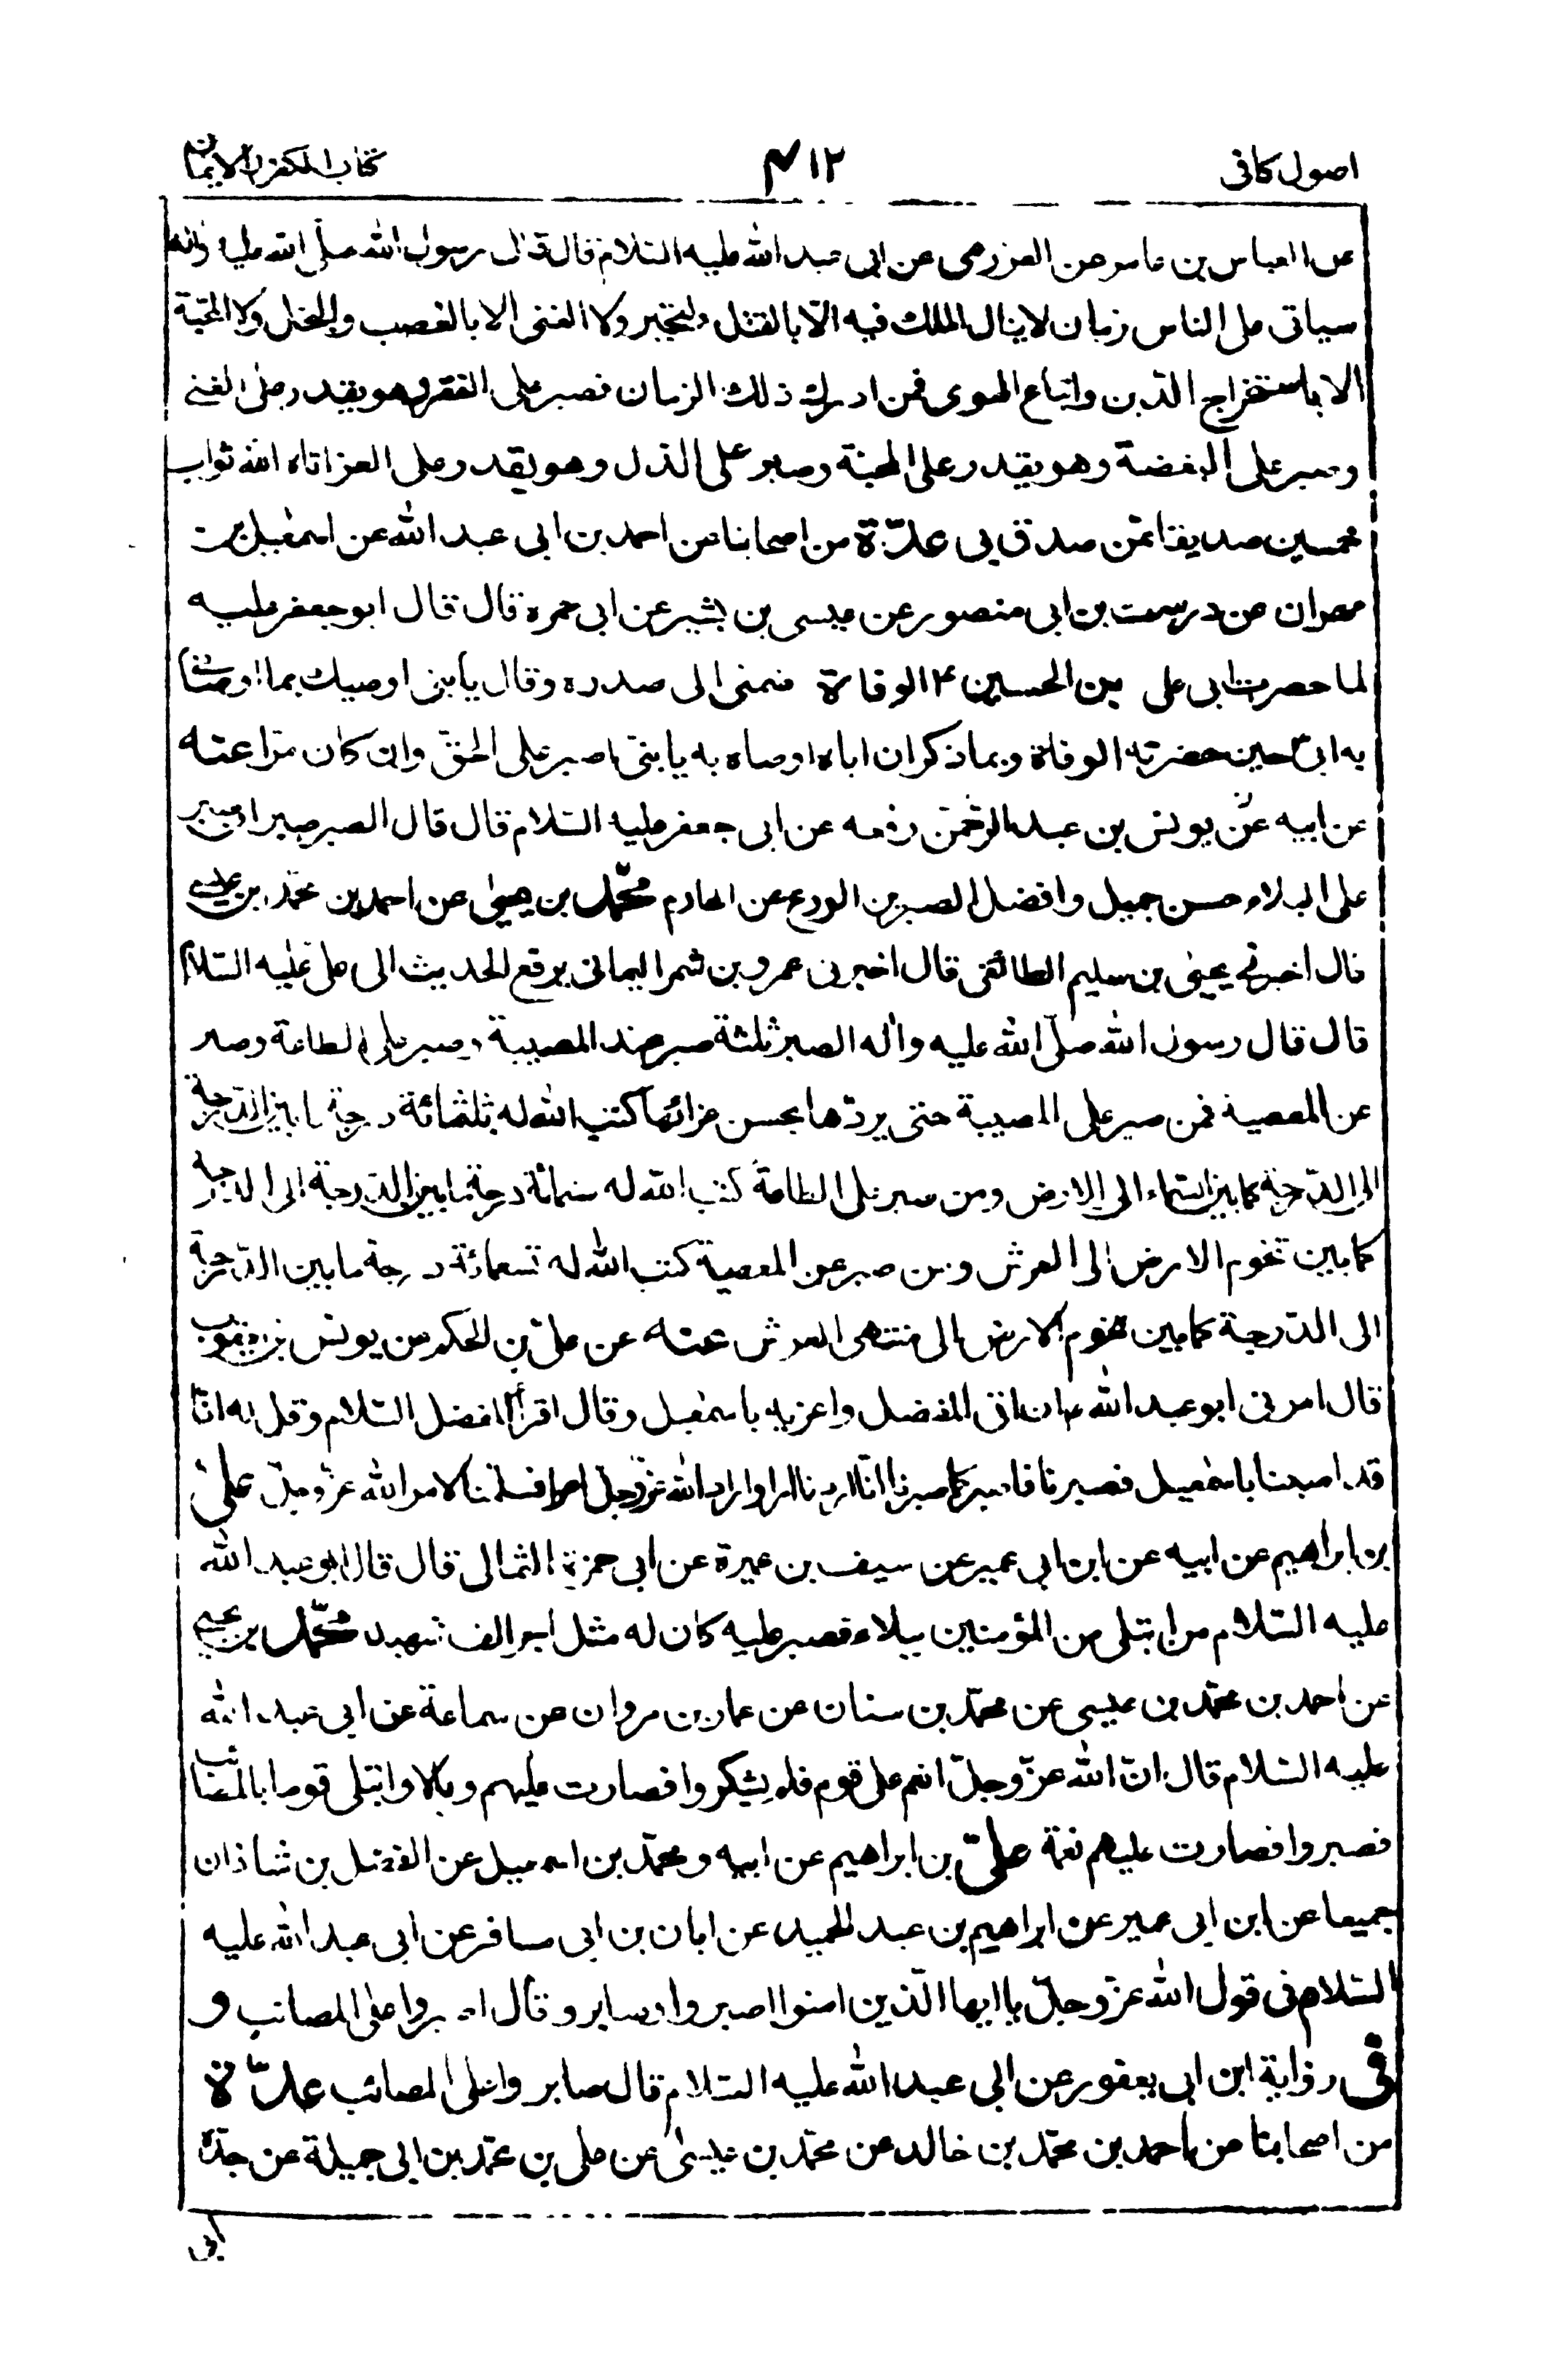 اصول كافى
۴۱۲
كتاب الكفر والايمان
عن العباس بن عامر عن العزرمى عن ابى عبد الله عليه السّلام قال قال رسول الله صلّى الله عليه واله
سياتى على الناس زمان لاينال الملك فيه الّا بالقتل والتجبر ولا الغنى الا بالغصب والبخل ولا المحبّة
الا باستخراج الدّين واتباع الهوى فمن ادرك ذلك الزمان فصبر على الفقر وهو يقدر على الغنى
وصبر على البغضة وهو يقدر على المحبّة وصبر على الذل وهو يقدر على العز اتاه الله ثواب
خمسين صديقا ممّن صدق بى عدّة من اصحابنا عن احمد بن ابى عبد الله عن اسمٰعيل بن
مهران عن درست بن ابى منصور عن عيسى بن بشير عن ابى حمزه قال قال ابو جعفر عليه
لما حضرت ابى على بن الحسين ۴ الوفاة ضمنى الى صدره وقال يا بنى اوصيك بما اوصانى
به ابى حين حضرته الوفاة وبما ذكر ان اباه اوصاه به يا بنى اصبر على الحقّ وان كان مرّا عنه
عن ابيه عن يونس بن عبد الرحمٰن رفعه عن ابى جعفر عليه السّلام قال قال الصبر صبران صبر
على البلاء حسن جميل وافضل الصبرين الورع عن المحارم محمّد بن يحيىٰ عن احمد بن محمّد بن عيسى
قال اخبرنى يحيىٰ بن سليم الطائفى قال اخبرنى عمرو بن شمر اليمانى يرفع الحديث الى على عليه السّلام
قال قال رسول الله صلّى الله عليه واٰله الصبر ثلثة صبر عند المصيبة وصبر على الطاعة وصبر
عن المعصية فمن صبر على المصيبة حتى يردّها بحسن عزائها كتب الله له ثلثمائة درجة ما بين الدّرجة
الى الدّرجة كما بين السّماء الى الارض ومن صبر على الطاعة كتب الله له ستمائة درجة ما بين الدّرجة الى الدّرجة
كما بين تخوم الارض الى العرش ومن صبر عن المعصية كتب الله له تسعمائة درجة ما بين الدّرجة
الى الدّرجة كما بين تخوم الارض الى منتهى العرش عنه عن علىّ بن الحكم عن يونس بن يعقوب
قال امرنى ابو عبد الله ۴ ان اتى المفضل واعزيه باسمٰعيل وقال اقرأ المفضل السّلام وقل له انّا
قد اصبنا باسمٰعيل فصبرنا فاصبر كما صبرنا انّا اردنا امرا واراد الله عزّوجلّ امرا فسلّمنا لامر الله عزّوجلّ علىّ
بن ابراهيم عن ابيه عن ابن ابى عمير عن سيف بن عميرة عن ابى حمزة الثمالى قال قال ابو عبد الله
عليه السّلام من ابتلى من المؤمنين ببلاء فصبر عليه كان له مثل اجر الف شهيد محمّد بن يحيى
عن احمد بن محمّد بن عيسى عن محمّد بن سنان عن عمار بن مروان عن سماعة عن ابى عبد الله
عليه السّلام قال انّ الله عزّوجلّ انعم على قوم فلم يشكروا فصارت عليهم وبالا وابتلى قوما بالمصائب
فصبروا فصارت عليهم نعمة علىّ بن ابراهيم عن ابيه ومحمّد بن اسمعيل عن الفضل بن شاذان
جميعا عن ابن ابى عمير عن ابراهيم بن عبد الحميد عن ابان بن ابى مسافر عن ابى عبد الله عليه
السّلام فى قول الله عزّوجلّ يا ايها الّذين امنوا اصبروا وصابروا قال اصبروا على المصائب و
فى رواية ابن ابى يعفور عن ابى عبد الله عليه السّلام قال صابروا على المصائب عدّة
من اصحابنا عن احمد بن محمّد بن خالد عن محمّد بن عيسىٰ عن على بن محمّد بن ابى جميلة عن جدّه
ابى